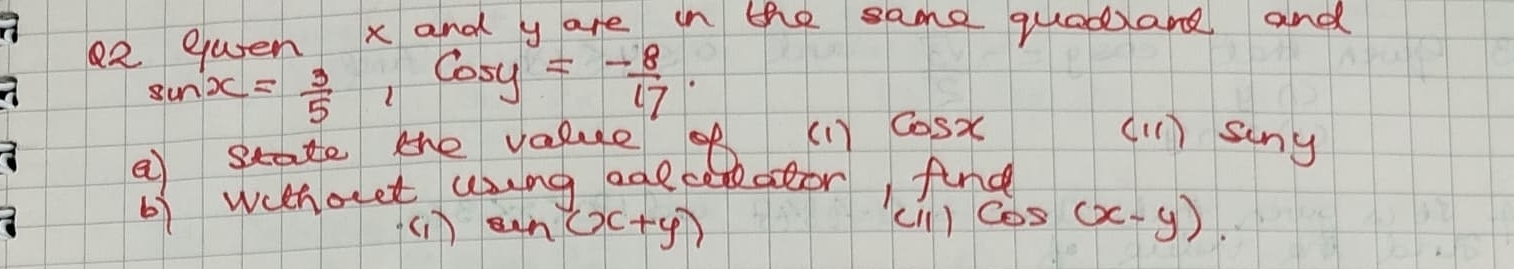 Q2 Given x and y are in the same quadrant and
sinx = 3/5 , Cosy = -8/17.
a) state the value of (i) Cosx (ii) siny
b) without using calculator, find
(i) sin(x+y) (ii) Cos (x-y).